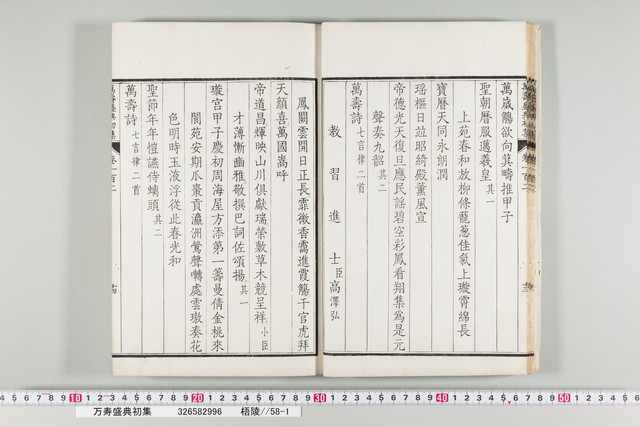 萬歲觴欲向箕疇推甲子
聖朝曆服邁羲皇 其一
上苑春和放柳條蘢葱佳氣上璇霄綿長
寶曆天同永朗潤
瑶樞日竝昭綺殿薰風宣
帝德光天復旦應民謡碧空彩鳳看翔集爲是元
聲奏九韶 其二
萬壽詩 七言律二首
教習進士臣高澤弘
鳳闕雲開日正長霏微香靄進霞觴千官虎拜
天顏喜萬國嵩呼
帝道昌輝映山川俱獻瑞榮敷草木競呈祥 小臣
才薄慚幽雅敬撰巴詞佐頌揚 其一
璇宮甲子慶初周海屋方添第一籌曼倩金桃來
閬苑安期瓜棗貢瀛洲鶯聲囀處雲璈奏花
色明時玉液浮從此春光和
聖節年年愷讌侍螭頭 其二
萬壽詩 七言律二首
萬壽盛典初集
卷一百二
10
20
30
40
50
万寿盛典初集 326582996 梧陵//58-1